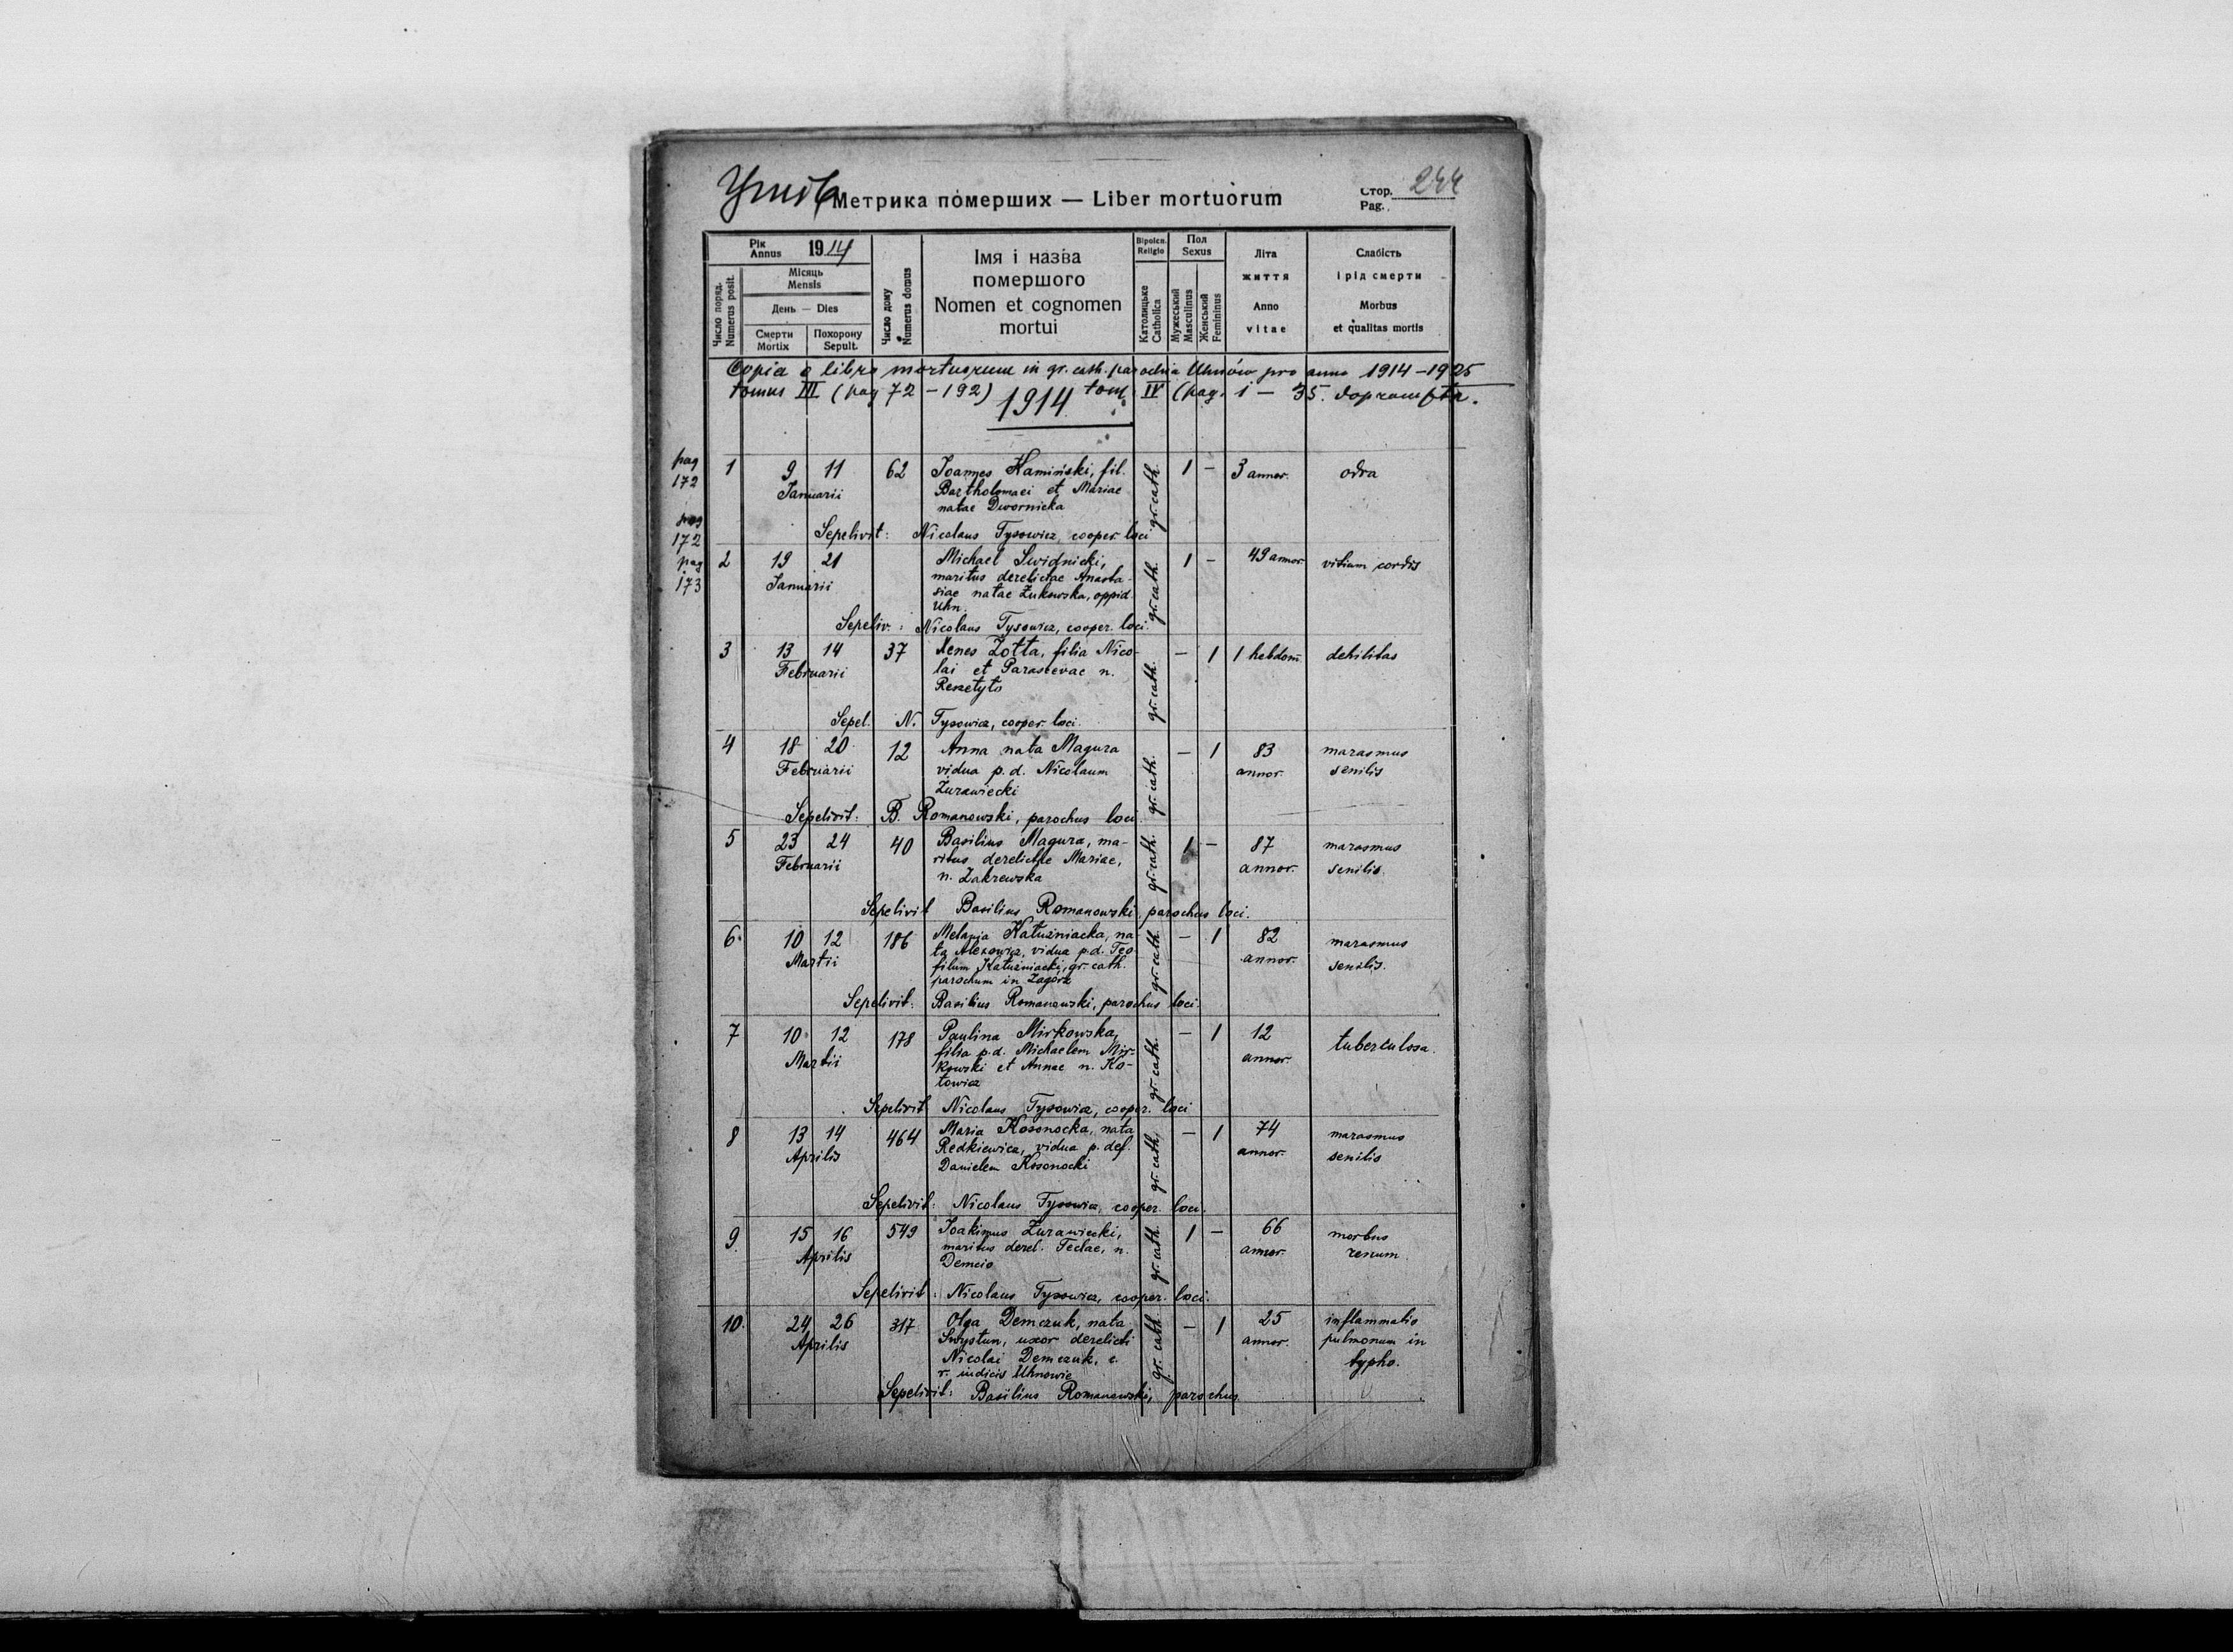 Угнів Метрика померших — Liber mortuorum Стор. 244
Pag.
Рік
Annus 1914
Місяць
Mensis
День — Dies
Смерти
Mortix
Похорону
Sepult.
Число поряд.
Numerus posit.
Число дому
Numerus domus
Імя і назва
помершого
Nomen et cognomen
mortui
Віроісп.
Religio
Католицьке
Catholica
Пол
Sexus
Мужеський
Masculinus
Женський
Femininus
Літа
життя
Anno
vitae
Слабість
і рід смерти
Morbus
et qualitas mortis
Copia a libro mortuorum in gr. cath. parochia Uhnów pro anno 1914–1925
tomus III (pag 72 – 192) tom. IV (pag. 1 — 35.
1914
pag 172
1 9 11 62 Joannes Kamiński, fil. gr. cath. 1 – 3 annor. odra
Januarii Bartholomaei et Mariae
natae Dwornicka
Sepelivit: Nicolaus Tysowicz, cooper. loci
pag 172
pag 173
2 19 21 Michael Swidnicki, gr. cath. 1 – 49 annor. vitium cordis
Januarii maritus derelictae Anasta-
siae natae Żukowska, oppid.
Uhn.
Sepeliv.: Nicolaus Tysowicz, cooper. loci.
3 13 14 37 Xenes Zotta, filia Nico- gr. cath. – 1 1 hebdom. debilitas
Februarii lai et Parascevae n.
Reszetyto
Sepel. N. Tysowicz, cooper. loci.
4 18 20 12 Anna nata Magura gr. cath. – 1 83 marasmus
Februarii vidua p. d. Nicolaum annor. senilis
Żurawiecki
Sepelivit: B. Romanowski, parochus loci
5 23 24 40 Basilius Magura, ma- gr. cath. 1 – 87 marasmus
Februarii ritus derelictae Mariae, annor. senilis.
n. Zakrewska
Sepelivit Basilius Romanowski, parochus loci.
6. 10 12 186 Melania Katużniacka, na- gr. cath. – 1 82 marasmus
Martii ta Alexowicz, vidua p.d. Teo- annor. senilis.
filum Katużniacki, gr. cath.
parochum in Zagórz
Sepelivit: Basilius Romanowski, parochus loci.
7 10 12 178 Paulina Mirkowska, gr. cath. – 1 12 tuberculosa.
Martii filia p.d. Michaelem Mir- annor.
kowski et Annae n. Ko-
towicz
Sepelivit Nicolaus Tysowicz, cooper. loci
8 13 14 464 Maria Kosonocka, nata gr. cath. – 1 74 marasmus
Aprilis Redkiewicz, vidua p. def. annor. senilis
Danielem Kosonocki
Sepelivit: Nicolaus Tysowicz, cooper. loci.
9. 15 16 549 Joakimus Żurawiecki, gr. cath. 1 – 66 morbus
Aprilis maritus derel. Teclae, n. annor. renum
Demcio
Sepelivit: Nicolaus Tysowicz, cooper. loci.
10. 24 26 317 Olga Demczuk, nata gr. cath. – 1 25 inflammatio
Aprilis Swystun, uxor derelicti annor. pulmonum in
Nicolai Demczuk, c. typho.
r. iudicis Uhnowie
Sepelivit: Basilius Romanowski, parochus.